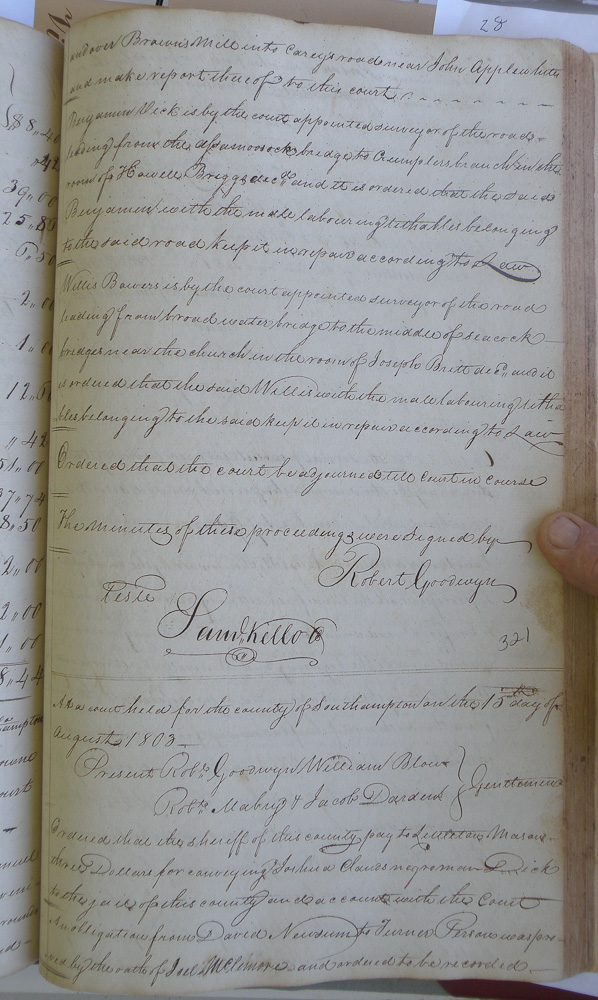 28
and over Browns Mill into Careys road near John Applewhites
and make report thereof to this court
Benjamin Vick is by the court appointed surveyor of the road
leading from the Assamoosock bridge to Crumplers branch in the
room of Howell Briggs decd. and it is ordered that the said
Benjamin with the male labouring tithables belonging
to the said road keep it in repair according to Law
Willis Bowers is by the court appointed surveyor of the road
leading from broad water bridge to the middle of seacock
bridge near the church in the room of Joseph Britt decd. and it
is ordered that the said Willis with the male labouring titha
bles belonging to the said keep it in repair according to Law
Ordered that the court be adjourned till court in course
The minutes of these proceedings were signed by
Robert Goodwyn
Teste
Saml. Kello Cl
321
At a court held for the county of Southampton on the 15th day of
August 1803
Present Robt. Goodwyn William Blow
Gentlemen
Robt. Mabry & Jacob Darden
Ordered that the sheriff of this county pay to Littleton Mason
three Dollars for conveying Joshua Clauds negro man Dick
to the jail of this county and account with the Court
An obligation from David Newsum to Turner Person was pro
ved by the oath of Joel McLemore and ordered to be recorded